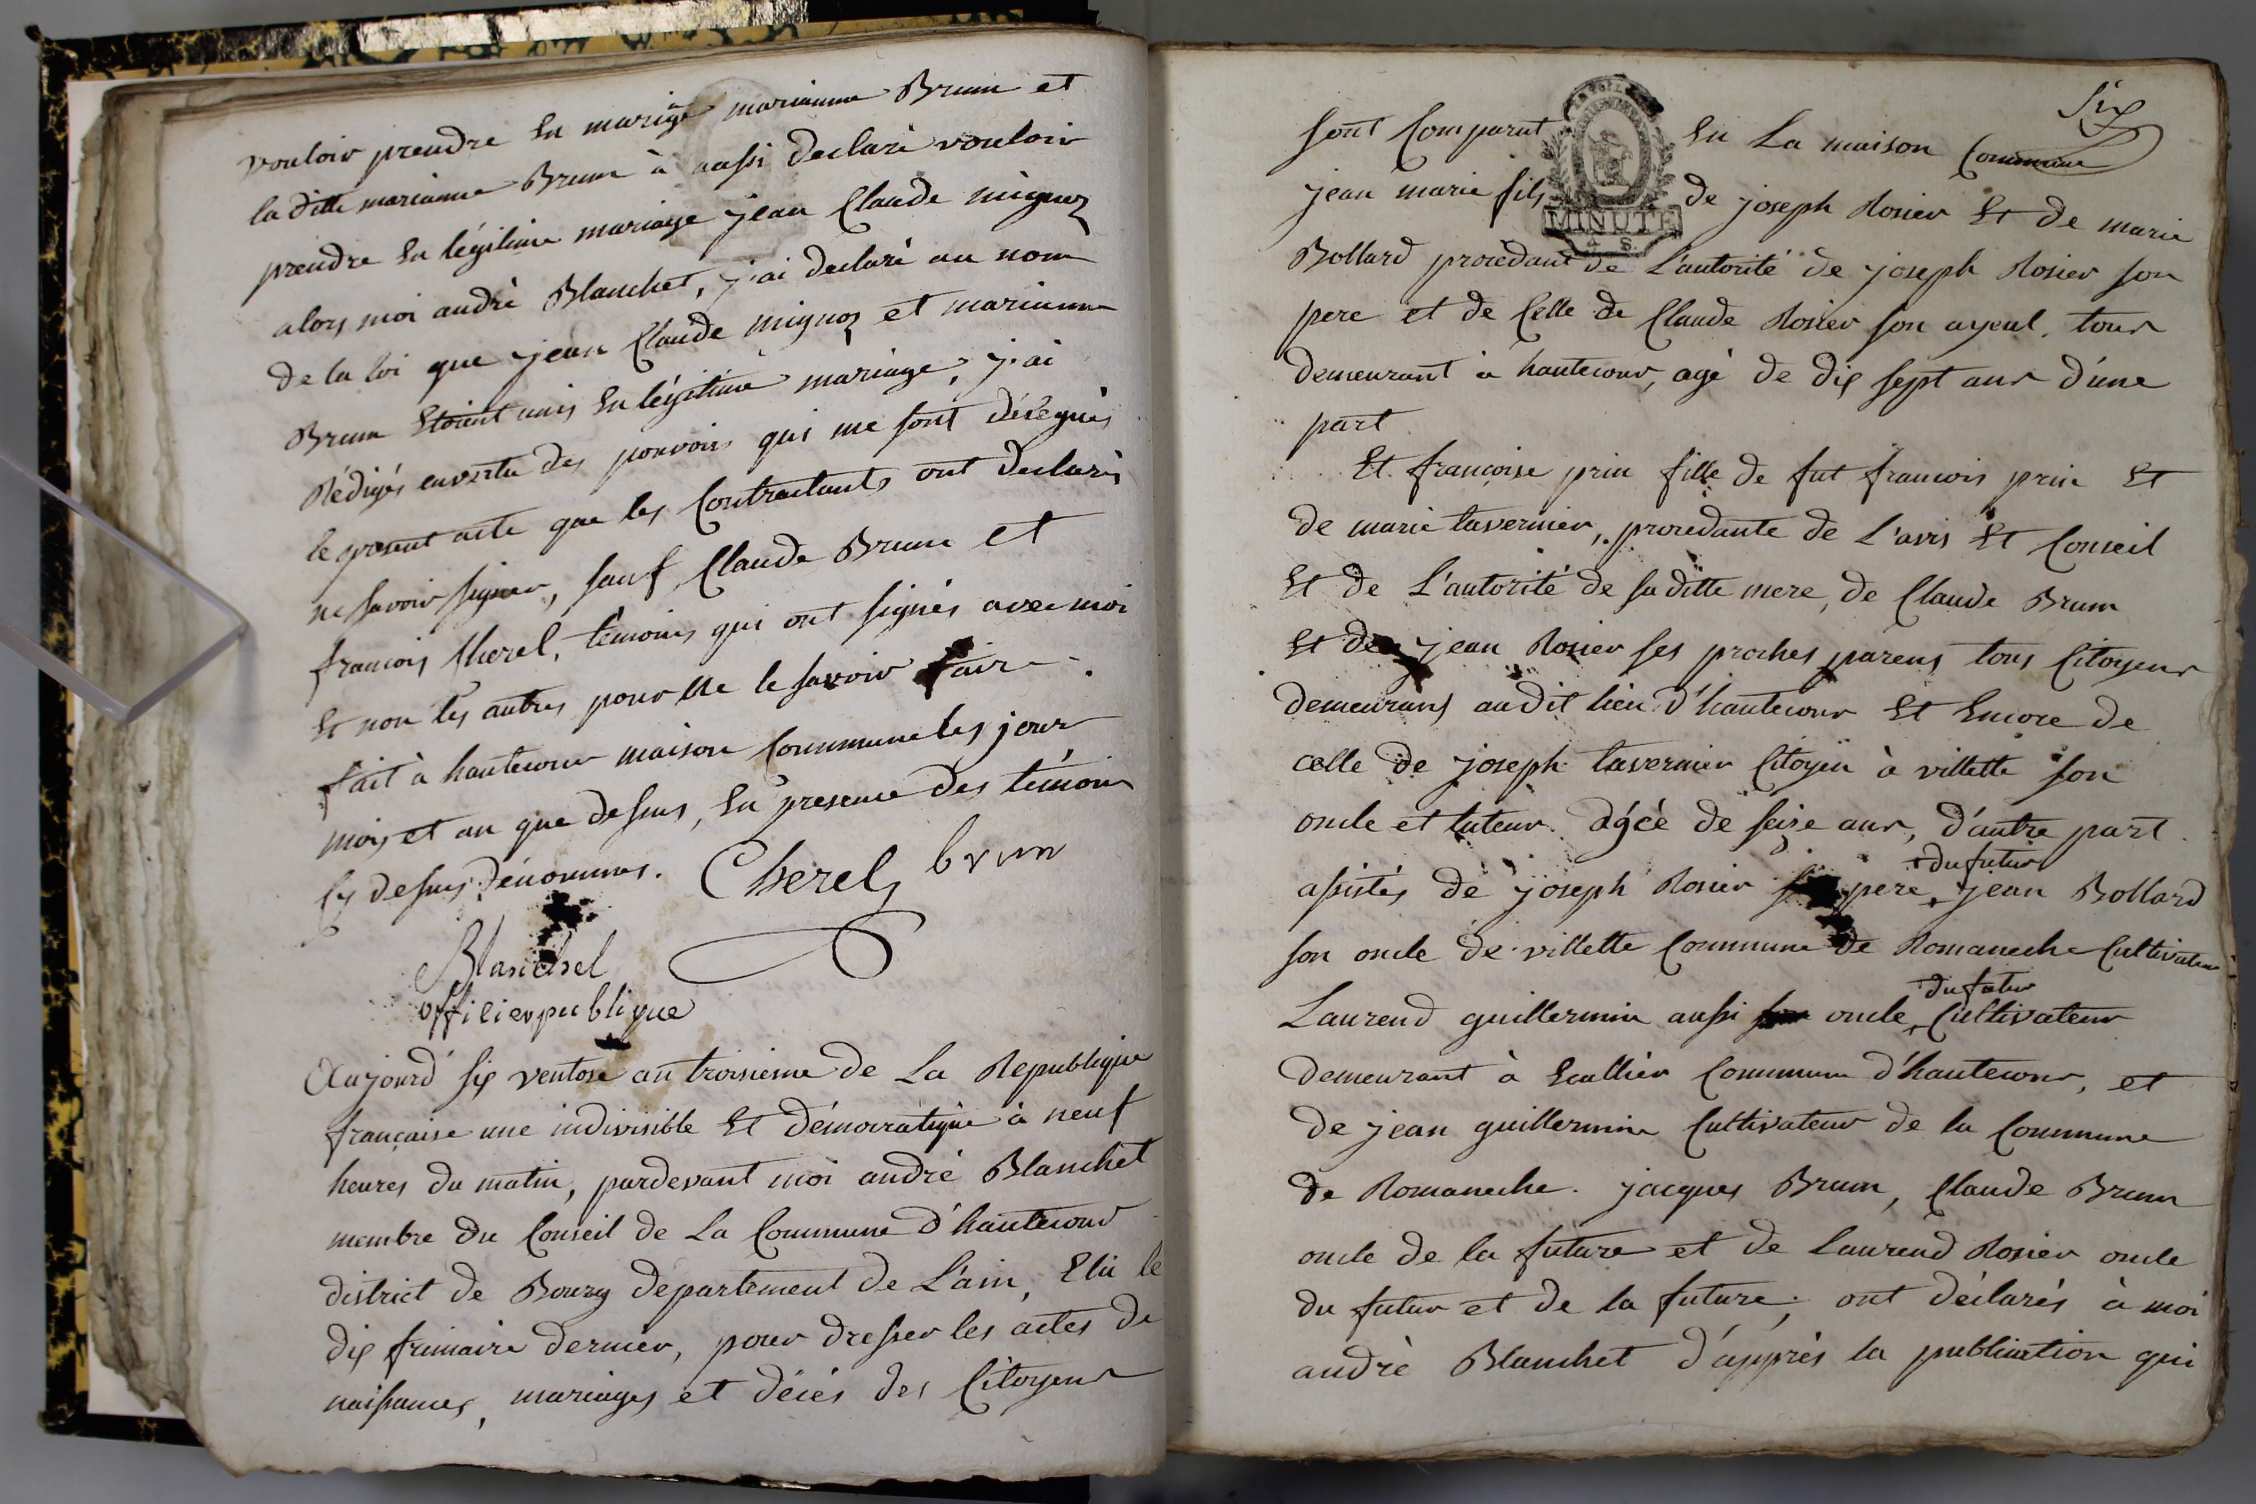 vouloir prendre En mariage marianne Brun et
la ditte marianne Brun à aussi declaré vouloir
prendre En légitime mariage jean Claude mignoz
alors moi andrè Blanchet, j'ai declaré au nom
de la loi que jean Claude mignoz et marianne
Brun Etoient unis En légitime mariage, j'ai
Rédigés envertu des pouvoirs qui me sont délégués
le present acte que les Contractants ont declarés
ne savoir signer, sauf Claude Brun et
francois Cherel, temoins qui ont signés avec moi
Et non les autres pour ne le savoir faire.
fait à hautecour maison Commune les jour
mois et an que dessus, En presence des témoin
Cy dessus dénommés. Cherel brun
Blanchet
officier publique
Aujourd' six ventose an troisieme de La Republique
française une indivisible Et démocratique à neuf
heures du matin, pardevant moi andrè Blanchet
membre du Conseil de La Commune d'hautecour
district de Bourg departement de L'ain, Elu le
dix frimaire dernier, pour dresser les actes de
naissances, mariages et décés des Citoyens
six
sont Comparut En La maison Commune
MINUTE
4 S.
jean marie fils de joseph Rosier Et de marie
Bollard procedant de L'autorité de joseph Rosier son
pere et de Celle de Claude Rosier son ayeul, tous
demeurant à hautecour, agé de dix sept ans d'une
part
Et francoise prin fille de fut francois prin Et
de marie tavernier, procedante de L'avis Et Conseil
Et de L'autorité de sa ditte mere, de Claude Brun
Et de jean Rosier ses proches parens tous Citoyens
demeurans audit lieu d'hautecour Et Encore de
celle de joseph tavernier Citoyen à villette son
oncle et tuteur. agée de seize ans, d'autre part
+ du futur
assistés de joseph Rosier pere + jean Bollard
son oncle de villette Commune de Romaneche Cultivateur
du futur
Laurend guillermin aussi oncle + Cultivateur
demeurant à Evallier Commune d'hautecour, et
de jean guillermin Cultivateur de la Commune
de Romaneche. jacques Brun, Claude Brun
oncle de la future et de Laurend Rosier oncle
du futur et de la future, ont déclarés à moi
andrè Blanchet d'apprès la publication qui